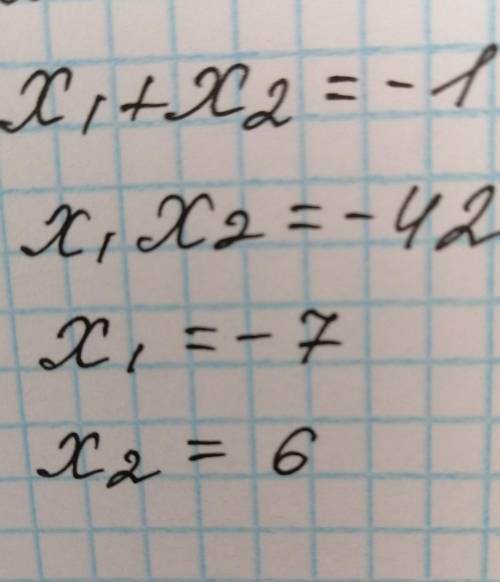 x₁+x₂=-1
x₁x₂=-42
x₁=-7
x₂=6